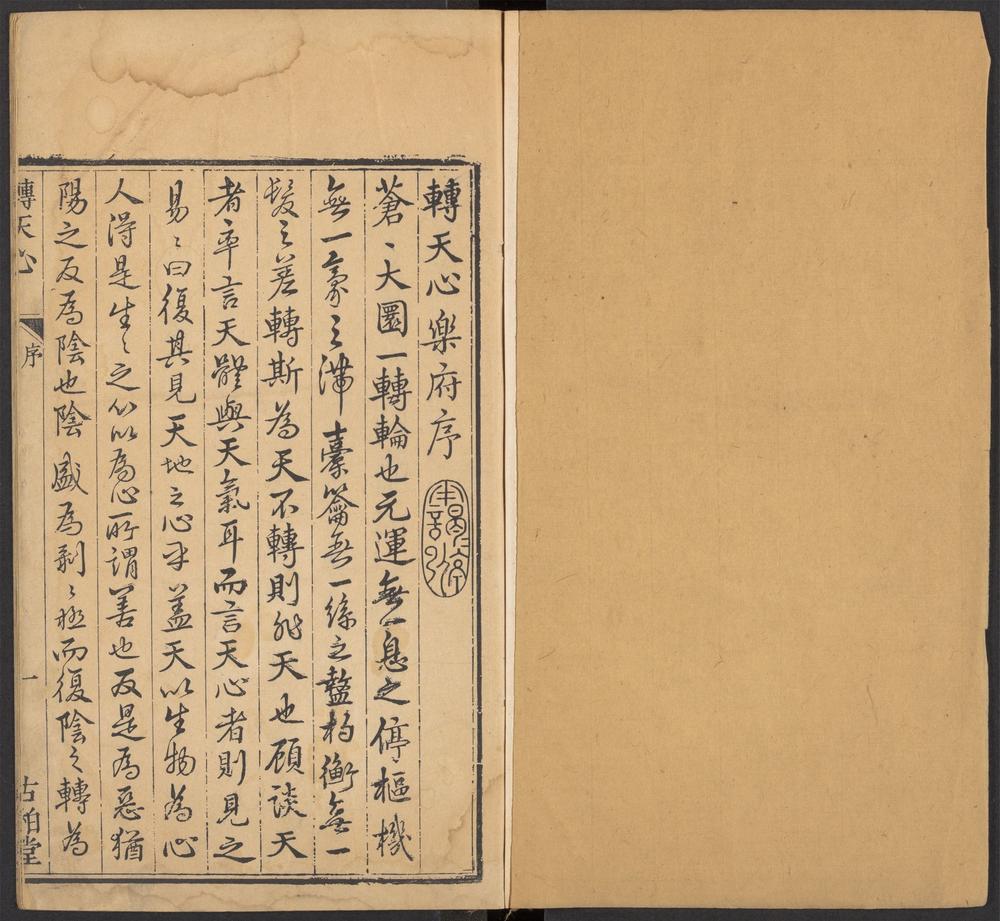 轉天心樂府序
蒼〻大圜一轉輪也元運無一息之停樞機
無一豪之滯橐籥無一絲之盭杓衡無一
髮之差轉斯為天不轉則非天也顧談天
者率言天體與天氣耳而言天心者則見之
易〻曰復其見天地之心乎蓋天以生物為心
人得是生〻之心以為心所謂善也反是為惡猶
陽之反為陰也陰盛為剝〻極而復陰之轉為
轉天心
序
一
古柏堂